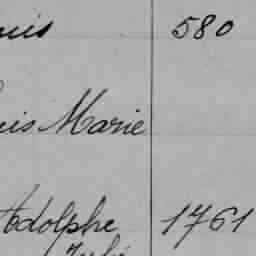 uis 580
uis Marie
Adolphe 1761